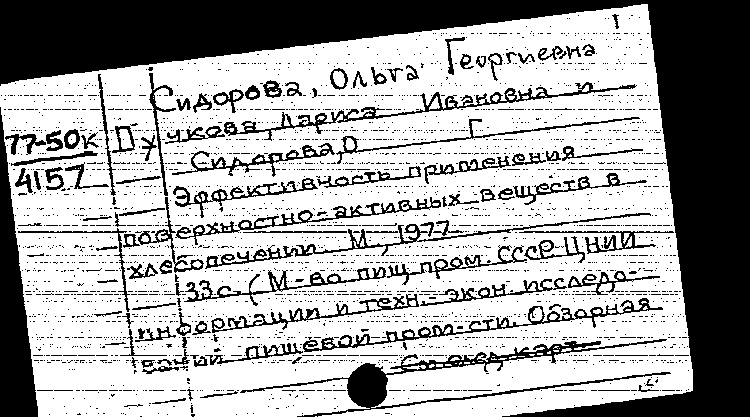 Сидорова, Ольга Георгиевна
77-50к
4157
Пучкова, Лариса Ивановна и
Сидорова, О Г
Эффективность применения
поверхностно-активных веществ в
хлебопечении. М., 1977
33с. (М-во пищ. пром. СССР. ЦНИИ
информации и техн.-экон. исследо-
ваний пищевой пром-сти. Обзорная
См след. карт.